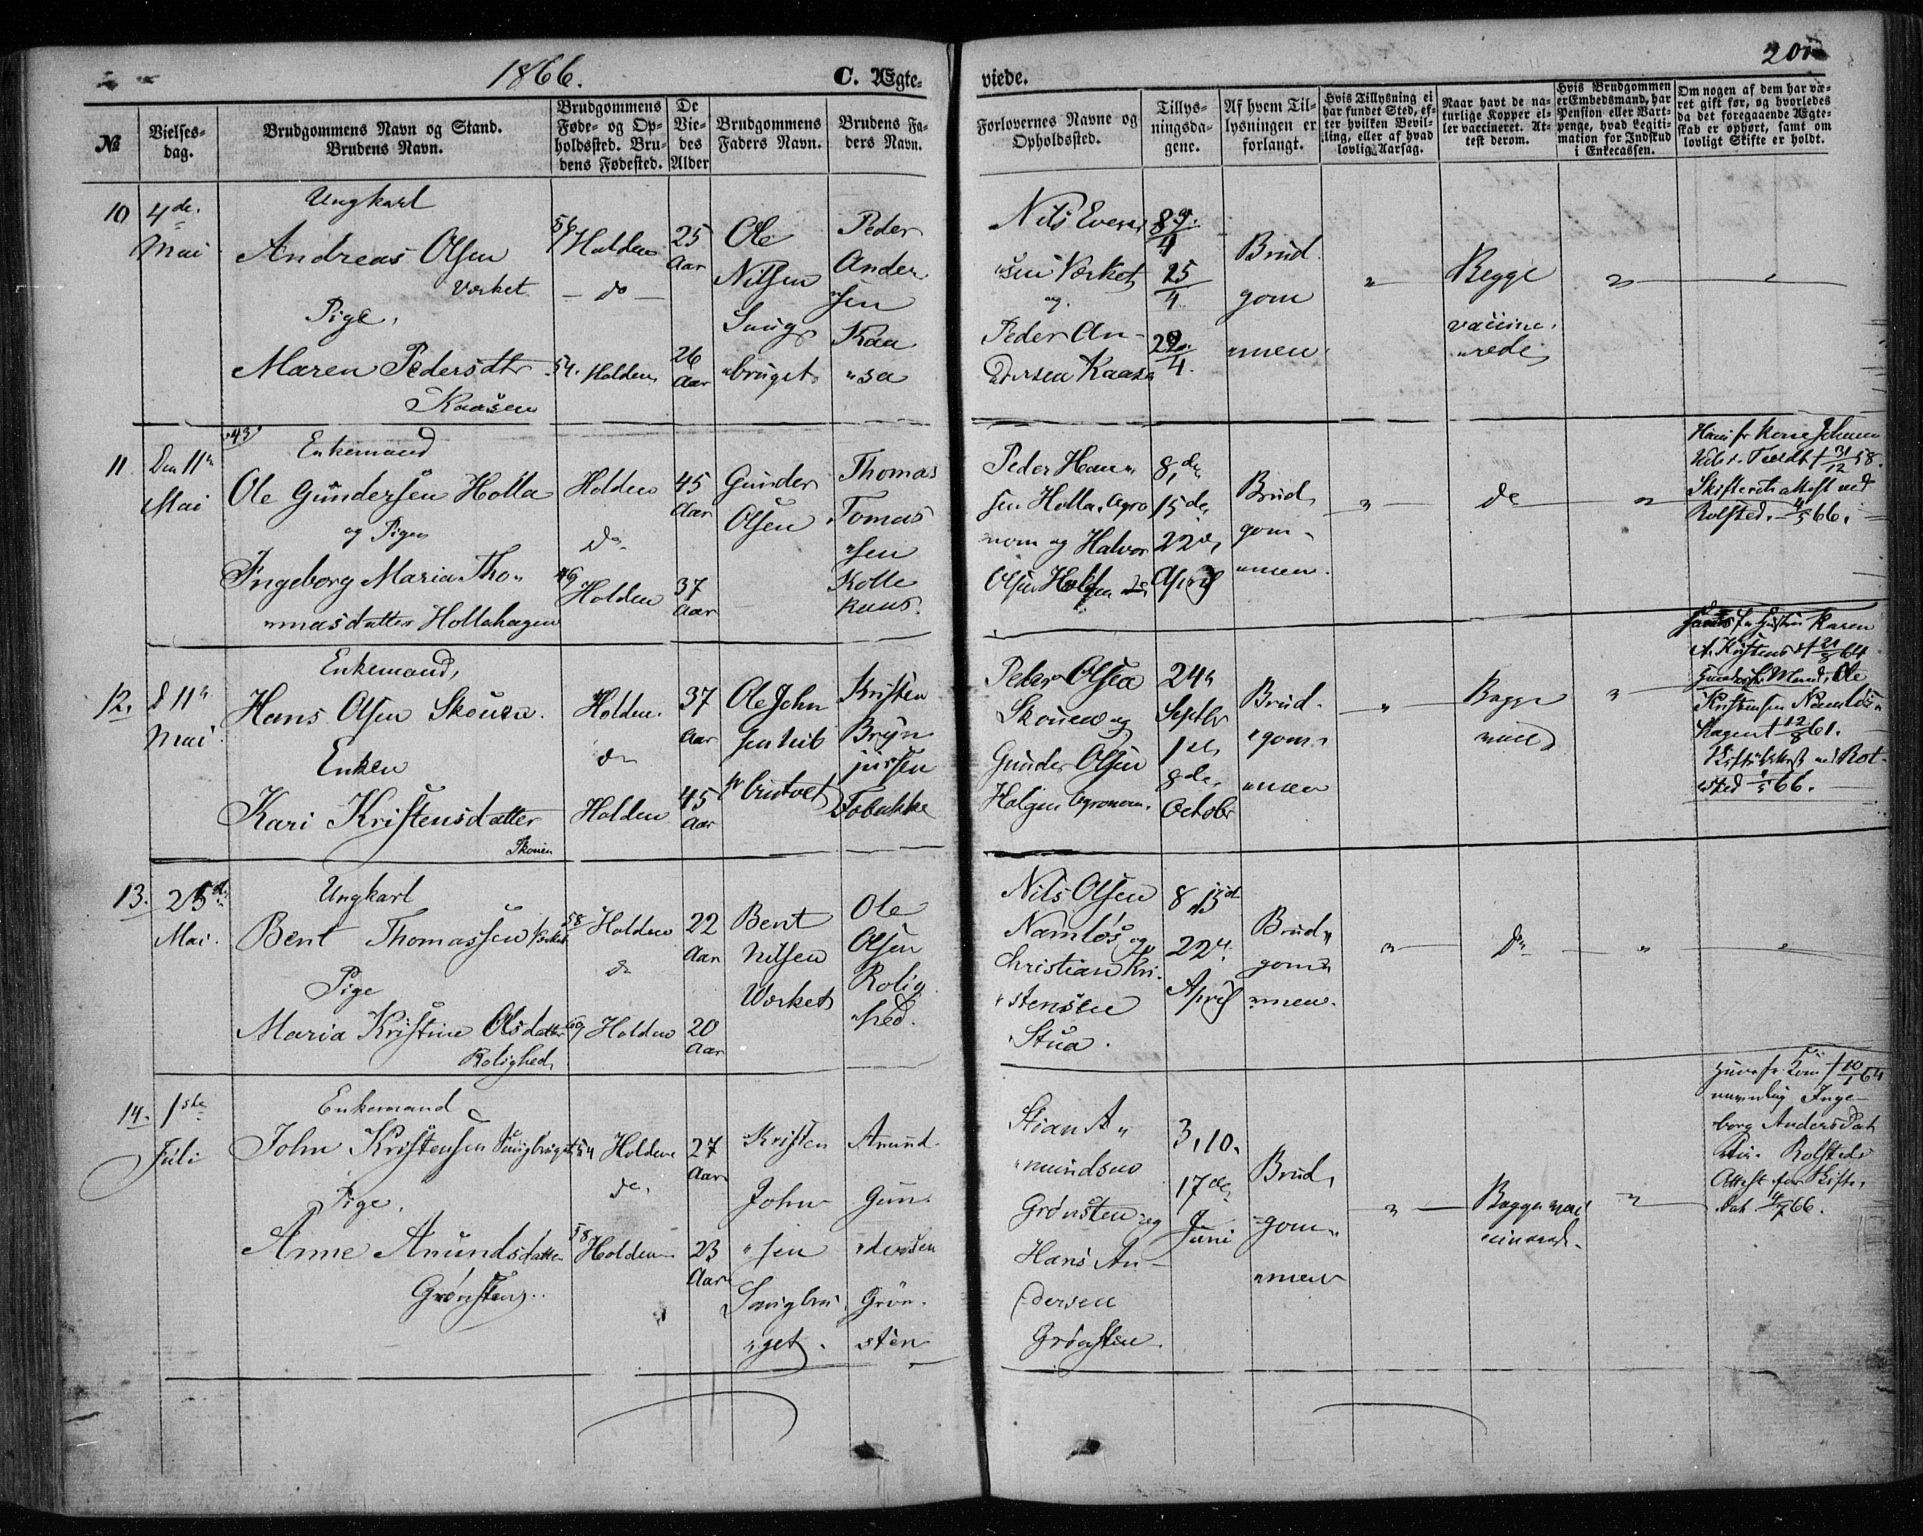 1866.
C. Ægte-
viede.
200
№
Vielses-
dag.
Brudgommens Navn og Stand.
Brudens Navn.
Brudgommens
Føde- og Op-
holdssted. Bru-
dens Fødested.
De
Vie-
des
Alder
Brudgommens
Faders Navn.
Brudens Fa-
ders Navn.
Forlovernes Navne og
Opholdssted.
Tillys-
ningsda-
gene.
Af hvem Til-
lysningen er
forlangt.
Hvis Tillysning ei
har fundet Sted, ef-
ter hvilken Bevil-
ling, eller af hvad
lovlig Aarsag.
Naar havt de na-
turlige Kopper el-
ler vaccineret. At-
test derom.
Hvis Brudgommen
er Embedsmand, har
Pension eller Vart-
penge, hvad Legiti-
mation for Indskud
i Enkecassen.
Om nogen af dem har væ-
ret gift før, og hvorledes
da det foregaaende Ægte-
skab er ophørt, samt om
lovligt Skifte er holdt.
10
4de.
Mai
Ungkarl
Andreas Olsen
Værket
Pige,
Maren Pedersdtr
Kaasen
56.
Holden
— do —
54. Holden
25
Aar
26
Aar
Ole
Nilsen
Saug
"bruget
Peder
Ander
"sen
Kaa
"sa
Nils Evens
"sen Værket
og
Peder An-
dersen Kaasa
15/4
29/4.
Brud.
gom
"men
"
Begge
vaccine,
"rede
"
"
11
Den 11te
Mai
"43"
Enkemand
Ole Gundersen Holla
og Pigen
Ingeborg Maria Tho-
"masdatter Hollahagen
Holden
do
46
Holden
45
Aar
37
Aar
Gunder
Olsen
Thomas
Tomas
"sen
Kolle
Peder Han"
sen Holla, Agro
nom og Halvor
Olsen
8,de
15de,
22d,
April
Brud,
gom-
"men.
"
do
"
Hans fr Kone Johanne
31/12 58.
Skifteretsattest ved
Rolfsted. 66.
12.
d 11te
Mai
Enkemand,
Hans Olsen Skouen.
Enken
Kari Kristensdatter
Skouen
Holden.
do
Holden
37
Aar
45
Aar
Ole John
sen
Kristen
Bryn
julfsen
Peder Olsen
Skouen og
Gunder Olsen
Holgen Agronom.
24de
Septbr
1ste,
8de,
October
Brud-
"gom"
"men
"
Begge
"
Hustru Karen
64
Mand, Ole
Kristensen Namløs"
Hagen † 12/8 61.
66.
13.
25de
Mai.
Ungkarl
Bent Thomassen Værket
Pige
Maria Kristine Olsdatter
Rolighed,
58
Holden
do
69 Holden
22
Aar
20
Aar
Bent
Nilsen
Værket
Ole
Olsen
Rolig
"hed.
Nils Olsen
Namløs og
Christian Kri-
"stensen
Stua.
8, 15de
22de
April
Brud"
gom"
"men.
"
do
"
"
14.
1ste
Juli
Enkemand
John Kristensen Saugbruget
Pige,
Anne Anundsdatter
Grønsten.
54 Holden
do,
58
Holden
27
Aar
23
Aar
Kristen
John
"sen
Saugbru
"get.
Anund
Gun
"dersen
Grøn-
sten
Stian A"
"mundsen
Grønsten og
Hans An-
dersen
Grønsten.
3, 10,
17de,
Juni
Brud,
gom"
"men
"
Begge vac
cinerede.
"
† 10/1 64
navnlig Inge-
borg Andersdat
Rolfsteds
Attest for Skifte,
dat 4/7 66.